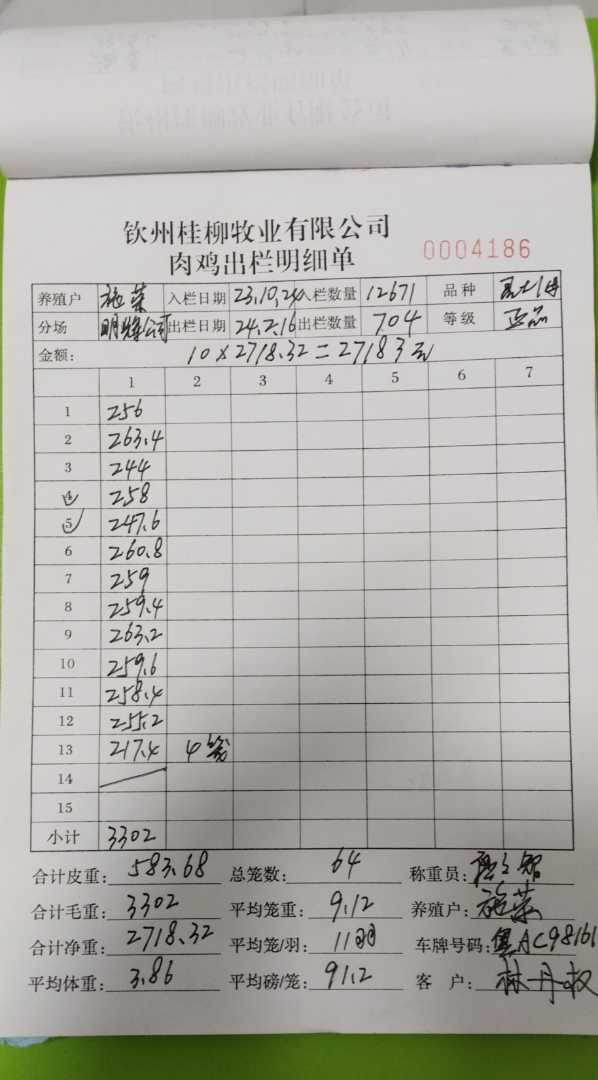 钦州桂柳牧业有限公司
肉鸡出栏明细单
0004186
养殖户 施荣 入栏日期 23.10.24 入栏数量 12671 品种
分场 出栏日期 24.2.16 出栏数量 704 等级 正品
金额: 10×2718.32=27183元
1 2 3 4 5 6 7
1 256
2 263.4
3 244
4 258
5 247.6
6 260.8
7 259
8 259.4
9 263.2
10 259.6
11 258.4
12 255.2
13 217.4 4笼
14
15
小计 3302
合计皮重: 583.68 总笼数: 64 称重员:
合计毛重: 3302 平均笼重: 9.12 养殖户: 施荣
合计净重: 2718.32 平均笼/羽: 11羽 车牌号码: 粤AC98161
平均体重: 3.86 平均磅/笼: 91.2 客 户: 林丹权